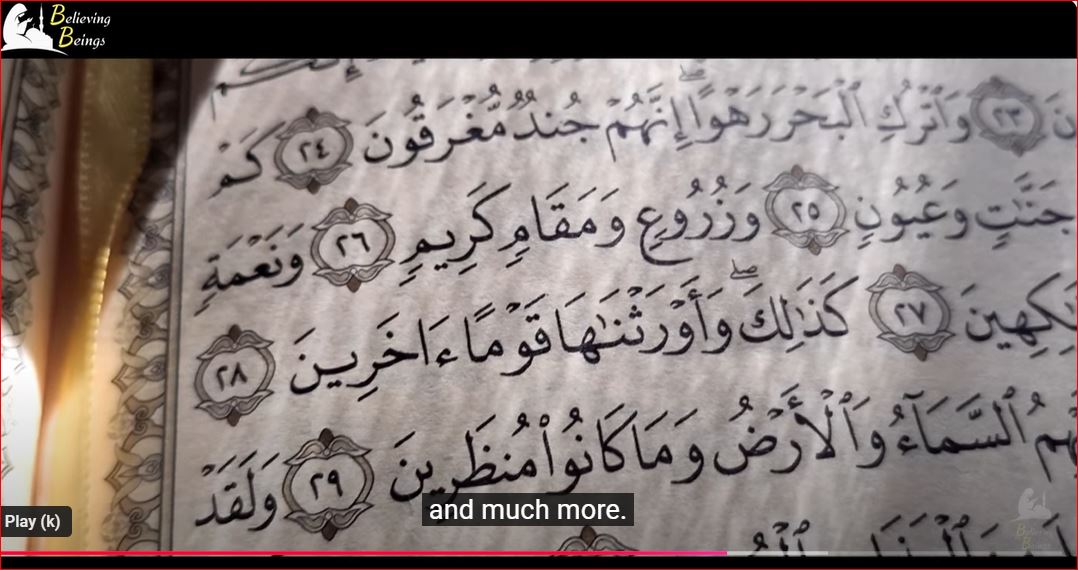 Believing
Beings
نَ ٢٣ وَٱتْرُكِ ٱلْبَحْرَ رَهْوًا ۖ إِنَّهُمْ جُندٌ مُّغْرَقُونَ ٢٤ كَمْ
جَنَّٰتٍ وَعُيُونٍ ٢٥ وَزُرُوعٍ وَمَقَامٍ كَرِيمٍ ٢٦ وَنَعْمَةٍ
ٰكِهِينَ ٢٧ كَذَٰلِكَ ۖ وَأَوْرَثْنَٰهَا قَوْمًا ءَاخَرِينَ ٢٨
هِمُ ٱلسَّمَآءُ وَٱلْأَرْضُ وَمَا كَانُوا۟ مُنظَرِينَ ٢٩ وَلَقَدْ
and much more.
Play (k)
Believing
Beings